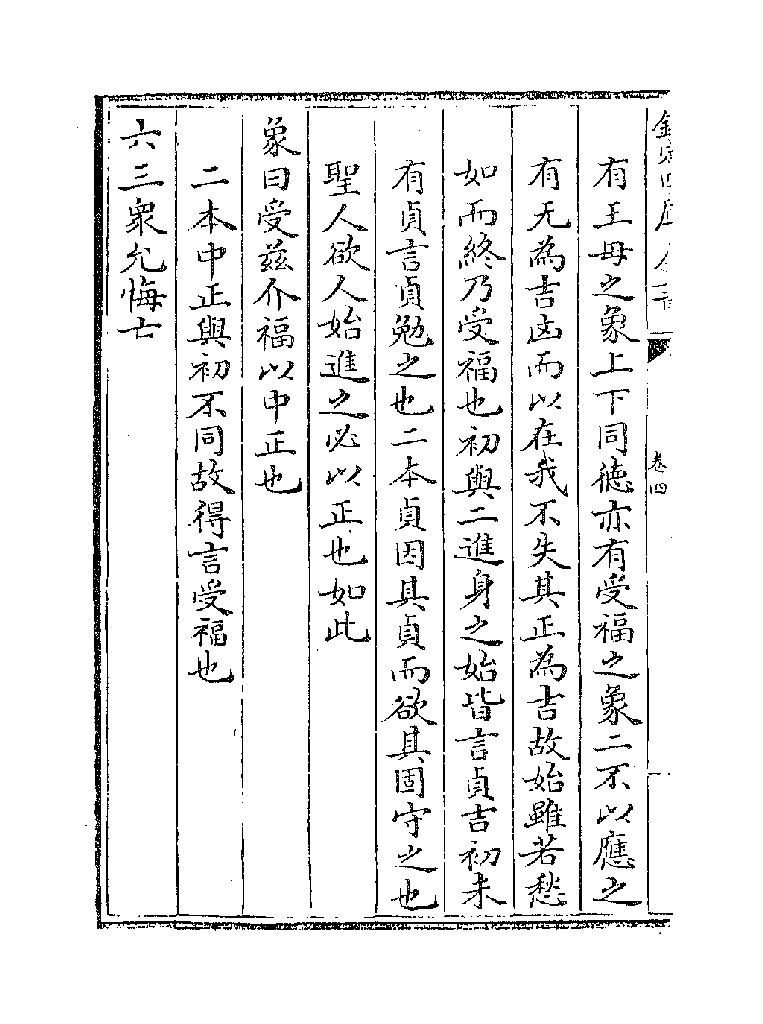 欽定四庫全書
卷四
有王母之象上下同德亦有受福之象二不以應之
有无為吉凶而以在我不失其正為吉故始雖若愁
如而終乃受福也初與二進身之始皆言貞吉初未
有貞言貞勉之也二本貞因其貞而欲其固守之也
聖人欲人始進之必以正也如此
象曰受茲介福以中正也
二本中正與初不同故得言受福也
六三衆允悔亡